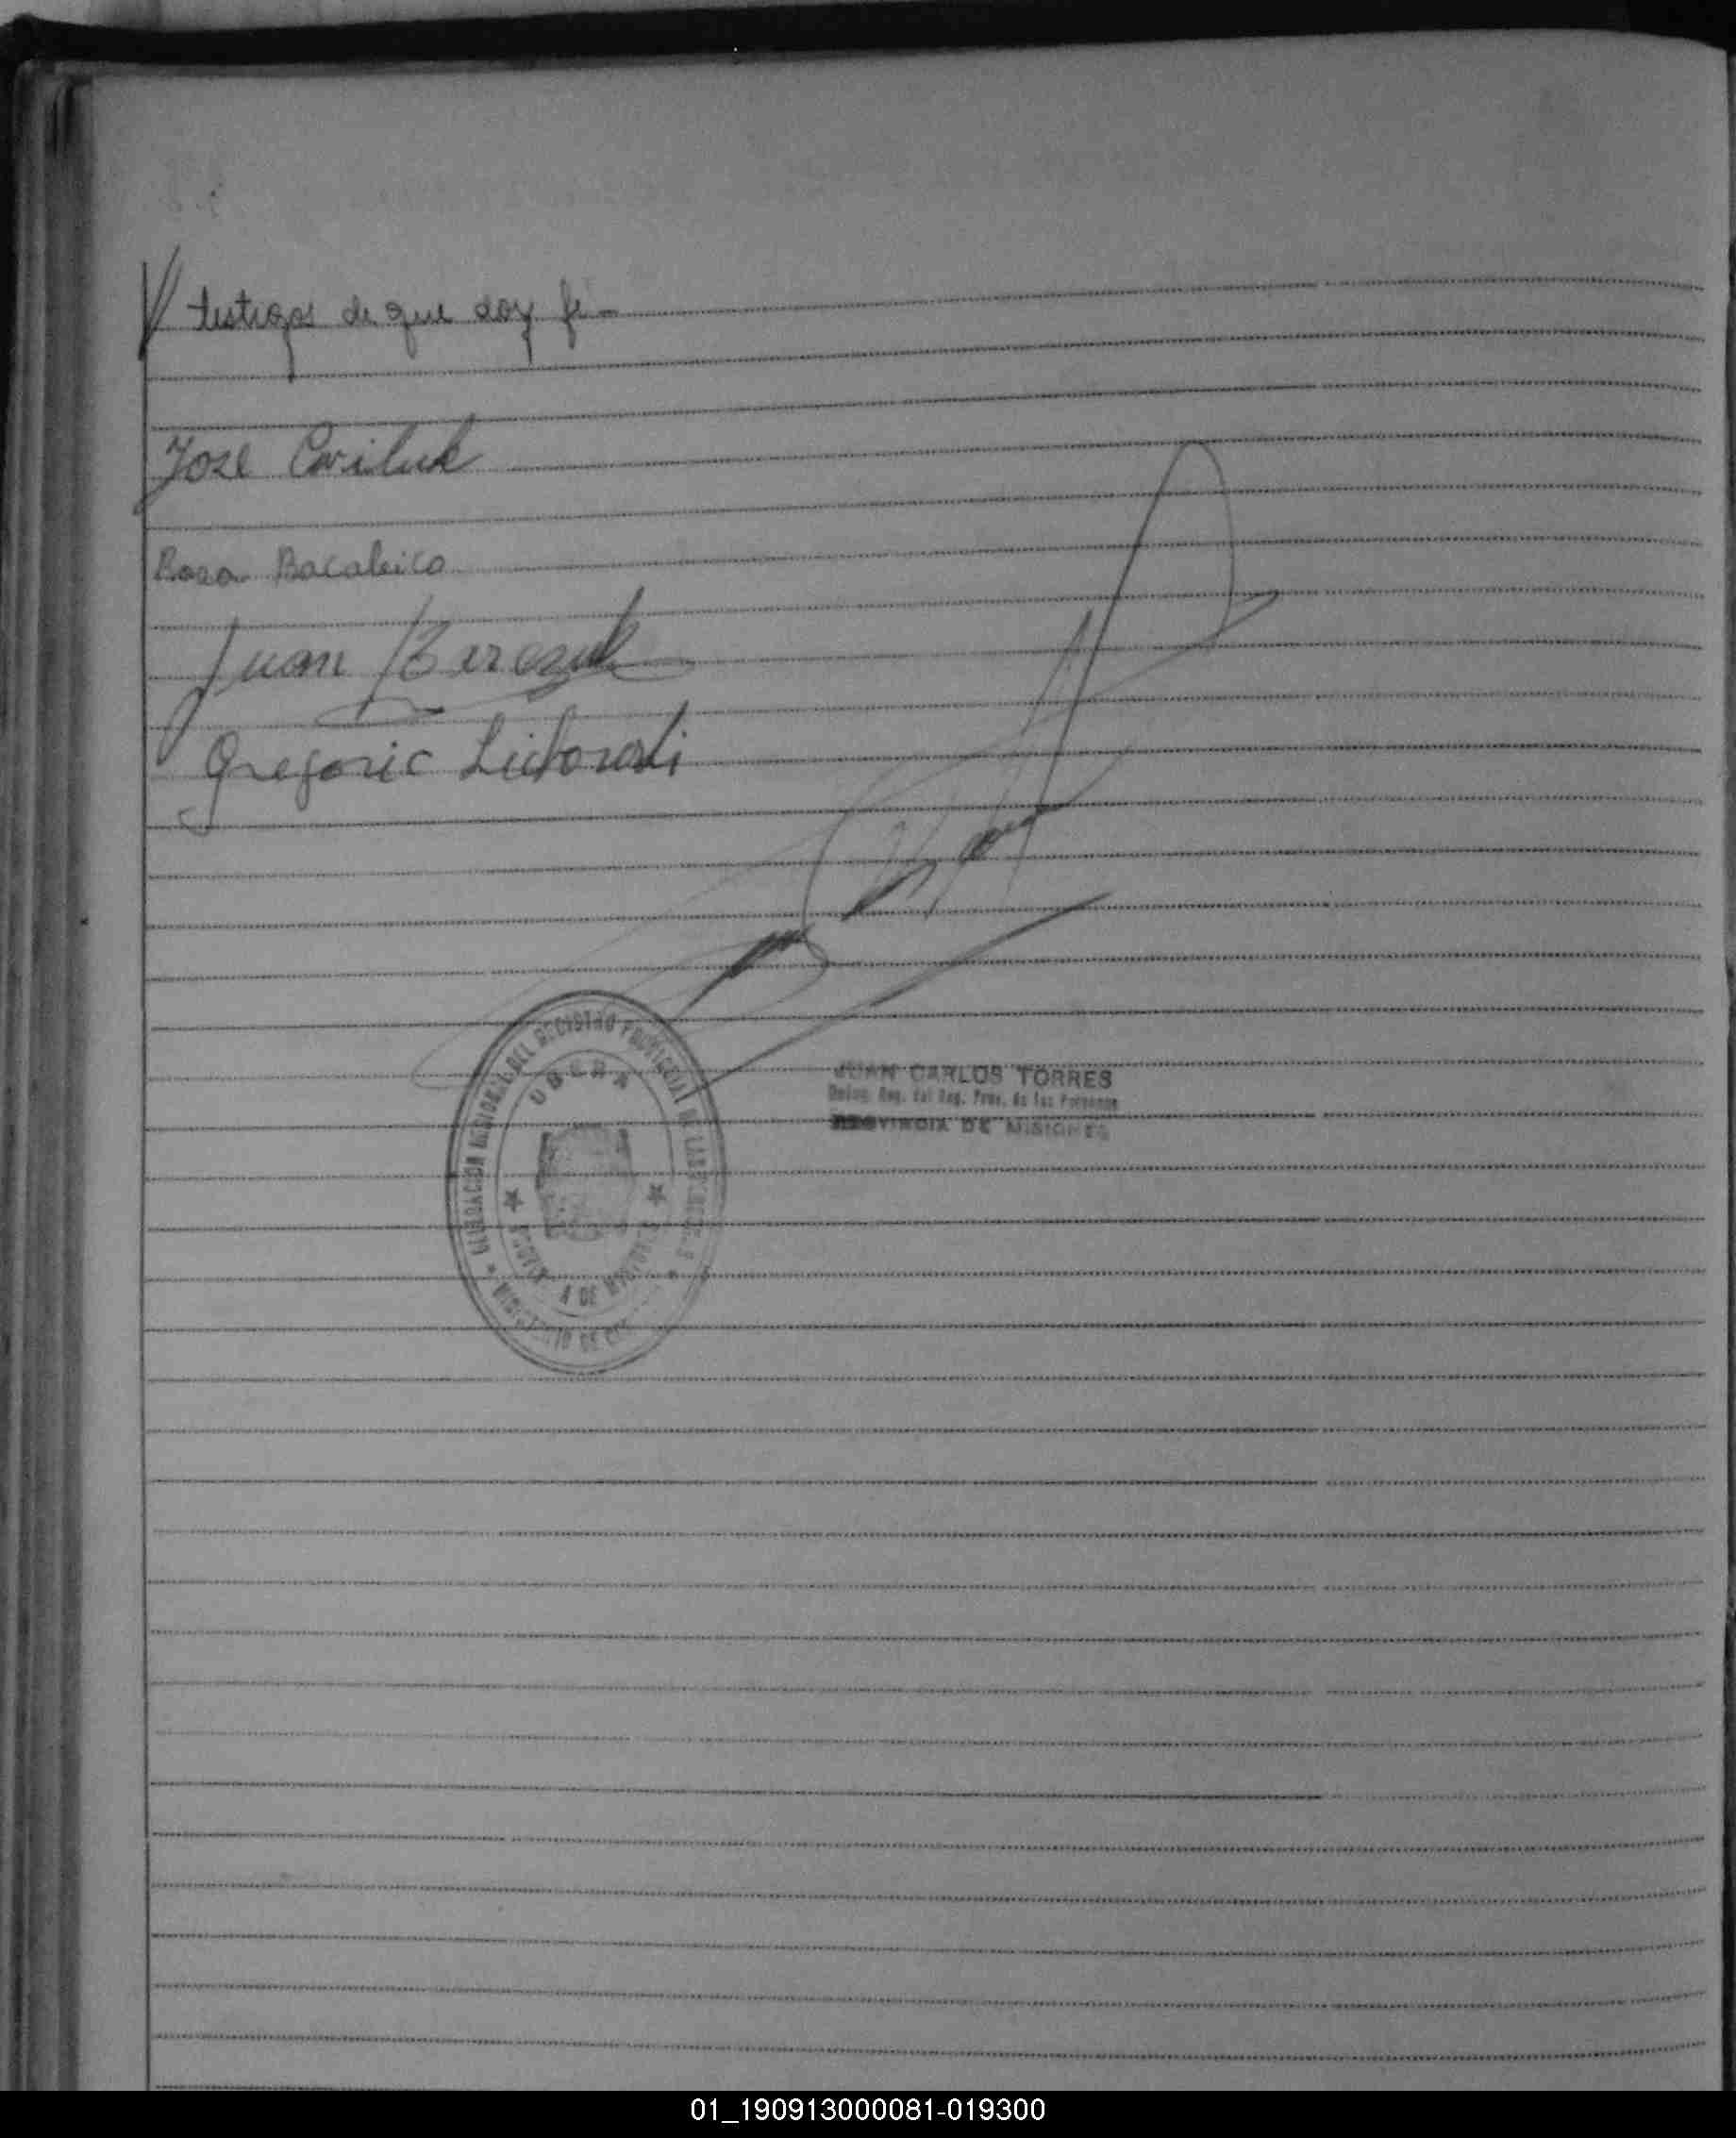 // testigos de que doy fé.-
Jose Cwiluk
Rosa Bacaleico
Juan
Gregorio
DELEGACION REGIONAL DEL REGISTRO PROVINCIAL DE LAS
OBERA
A DE
MINISTERIO DE
JUAN CARLOS TORRES
Deleg. Reg. del Reg. Prov. de las Personas
PROVINCIA DE MISIONES
01_190913000081-019300